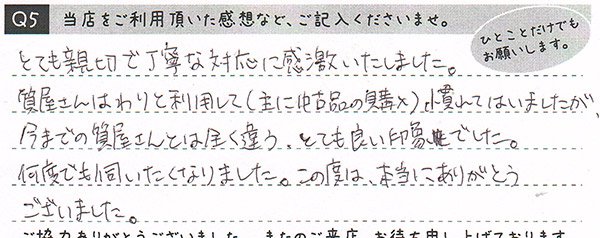 Q5 当店をご利用頂いた感想など、ご記入くださいませ。
ひとことだけでも
お願いします。
とても親切で丁寧な対応に感激いたしました。
質屋さんはわりと利用して(主に中古品の購入)、慣れてはいましたが、
今までの質屋さんとは全く違う、とても良い印象でした。
何度でも伺いたくなりました。この度は、本当にありがとう
ございました。
ご協力ありがとうございました。またのご来店、お待ち申し上げております。